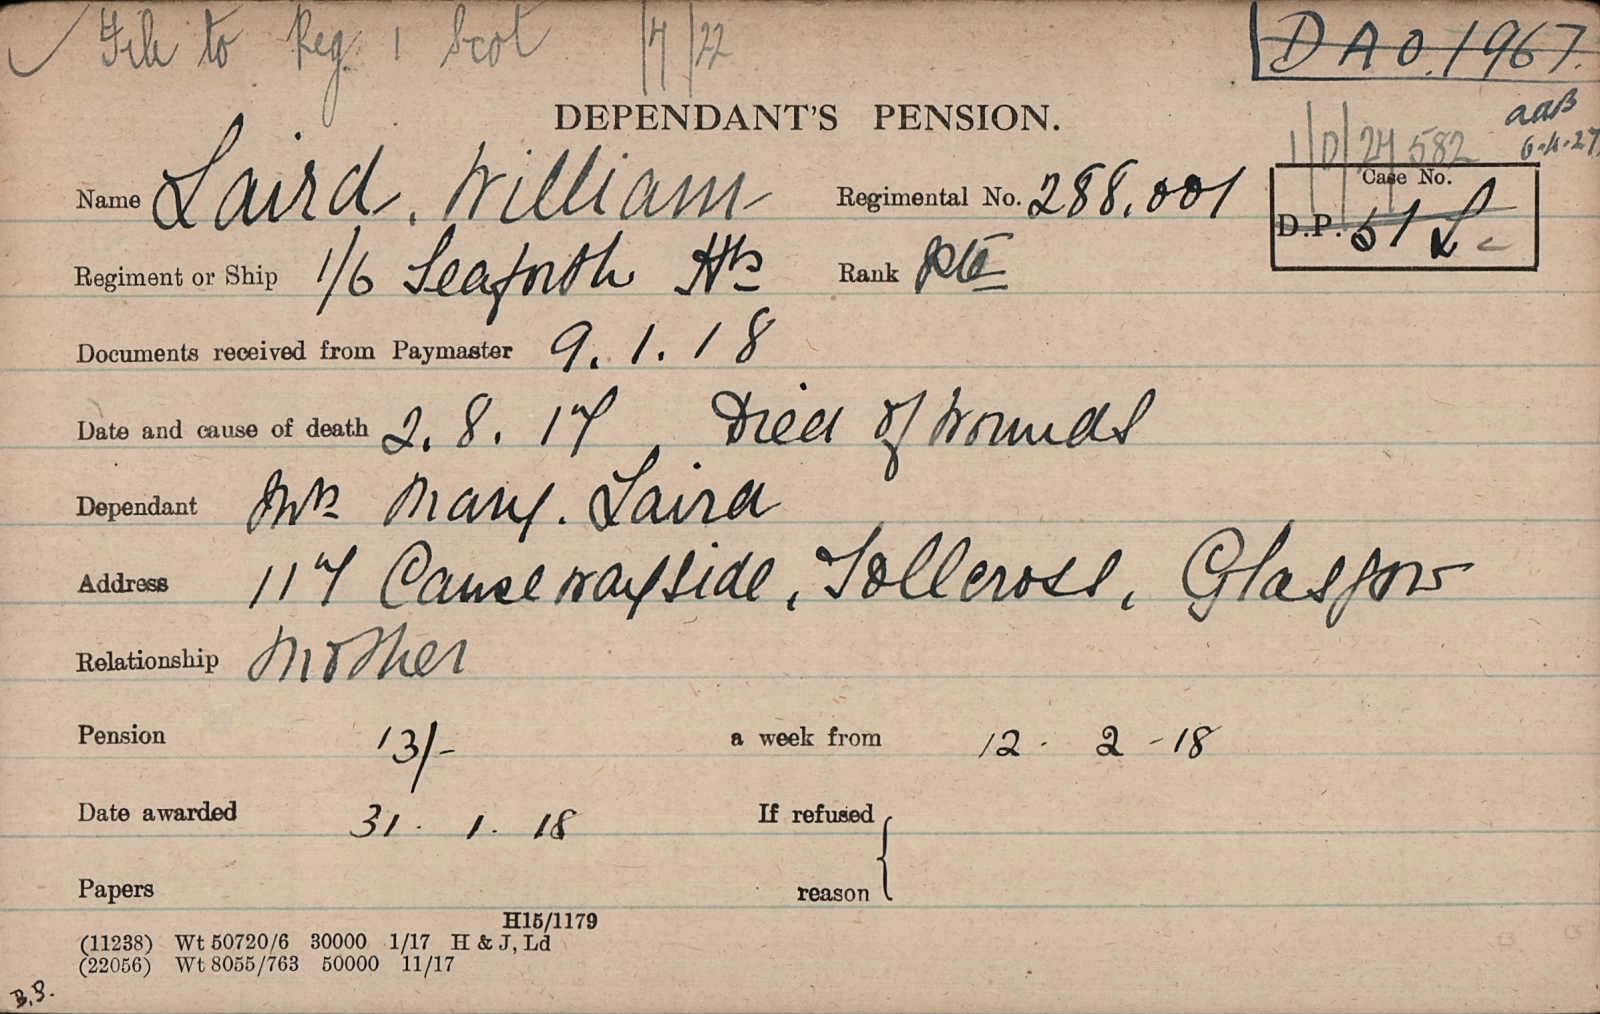 File to Reg. 1 Scot 1/4/22
DAO.1967.
DEPENDANT'S PENSION.
aaB
6-4-27
1/0/24582
Name Laird. William Regimental No. 288,001
Case No.
D.P. 51 L
Regiment or Ship 1/6 Seaforth Hrs Rank Pte
Documents received from Paymaster 9.1.18
Date and cause of death 2.8.17, Died of Wounds
Dependant Mrs Mary. Laird
Address 117 Causewayside, Tollcross, Glasgow
Relationship Mother
Pension 13/- a week from 12. 2-18
Date awarded 31. 1. 18 If refused
Papers reason
H15/1179
(11238) Wt 50720/6 30000 1/17 H & J, Ld
(22056) Wt 8055/763 50000 11/17
B.B.